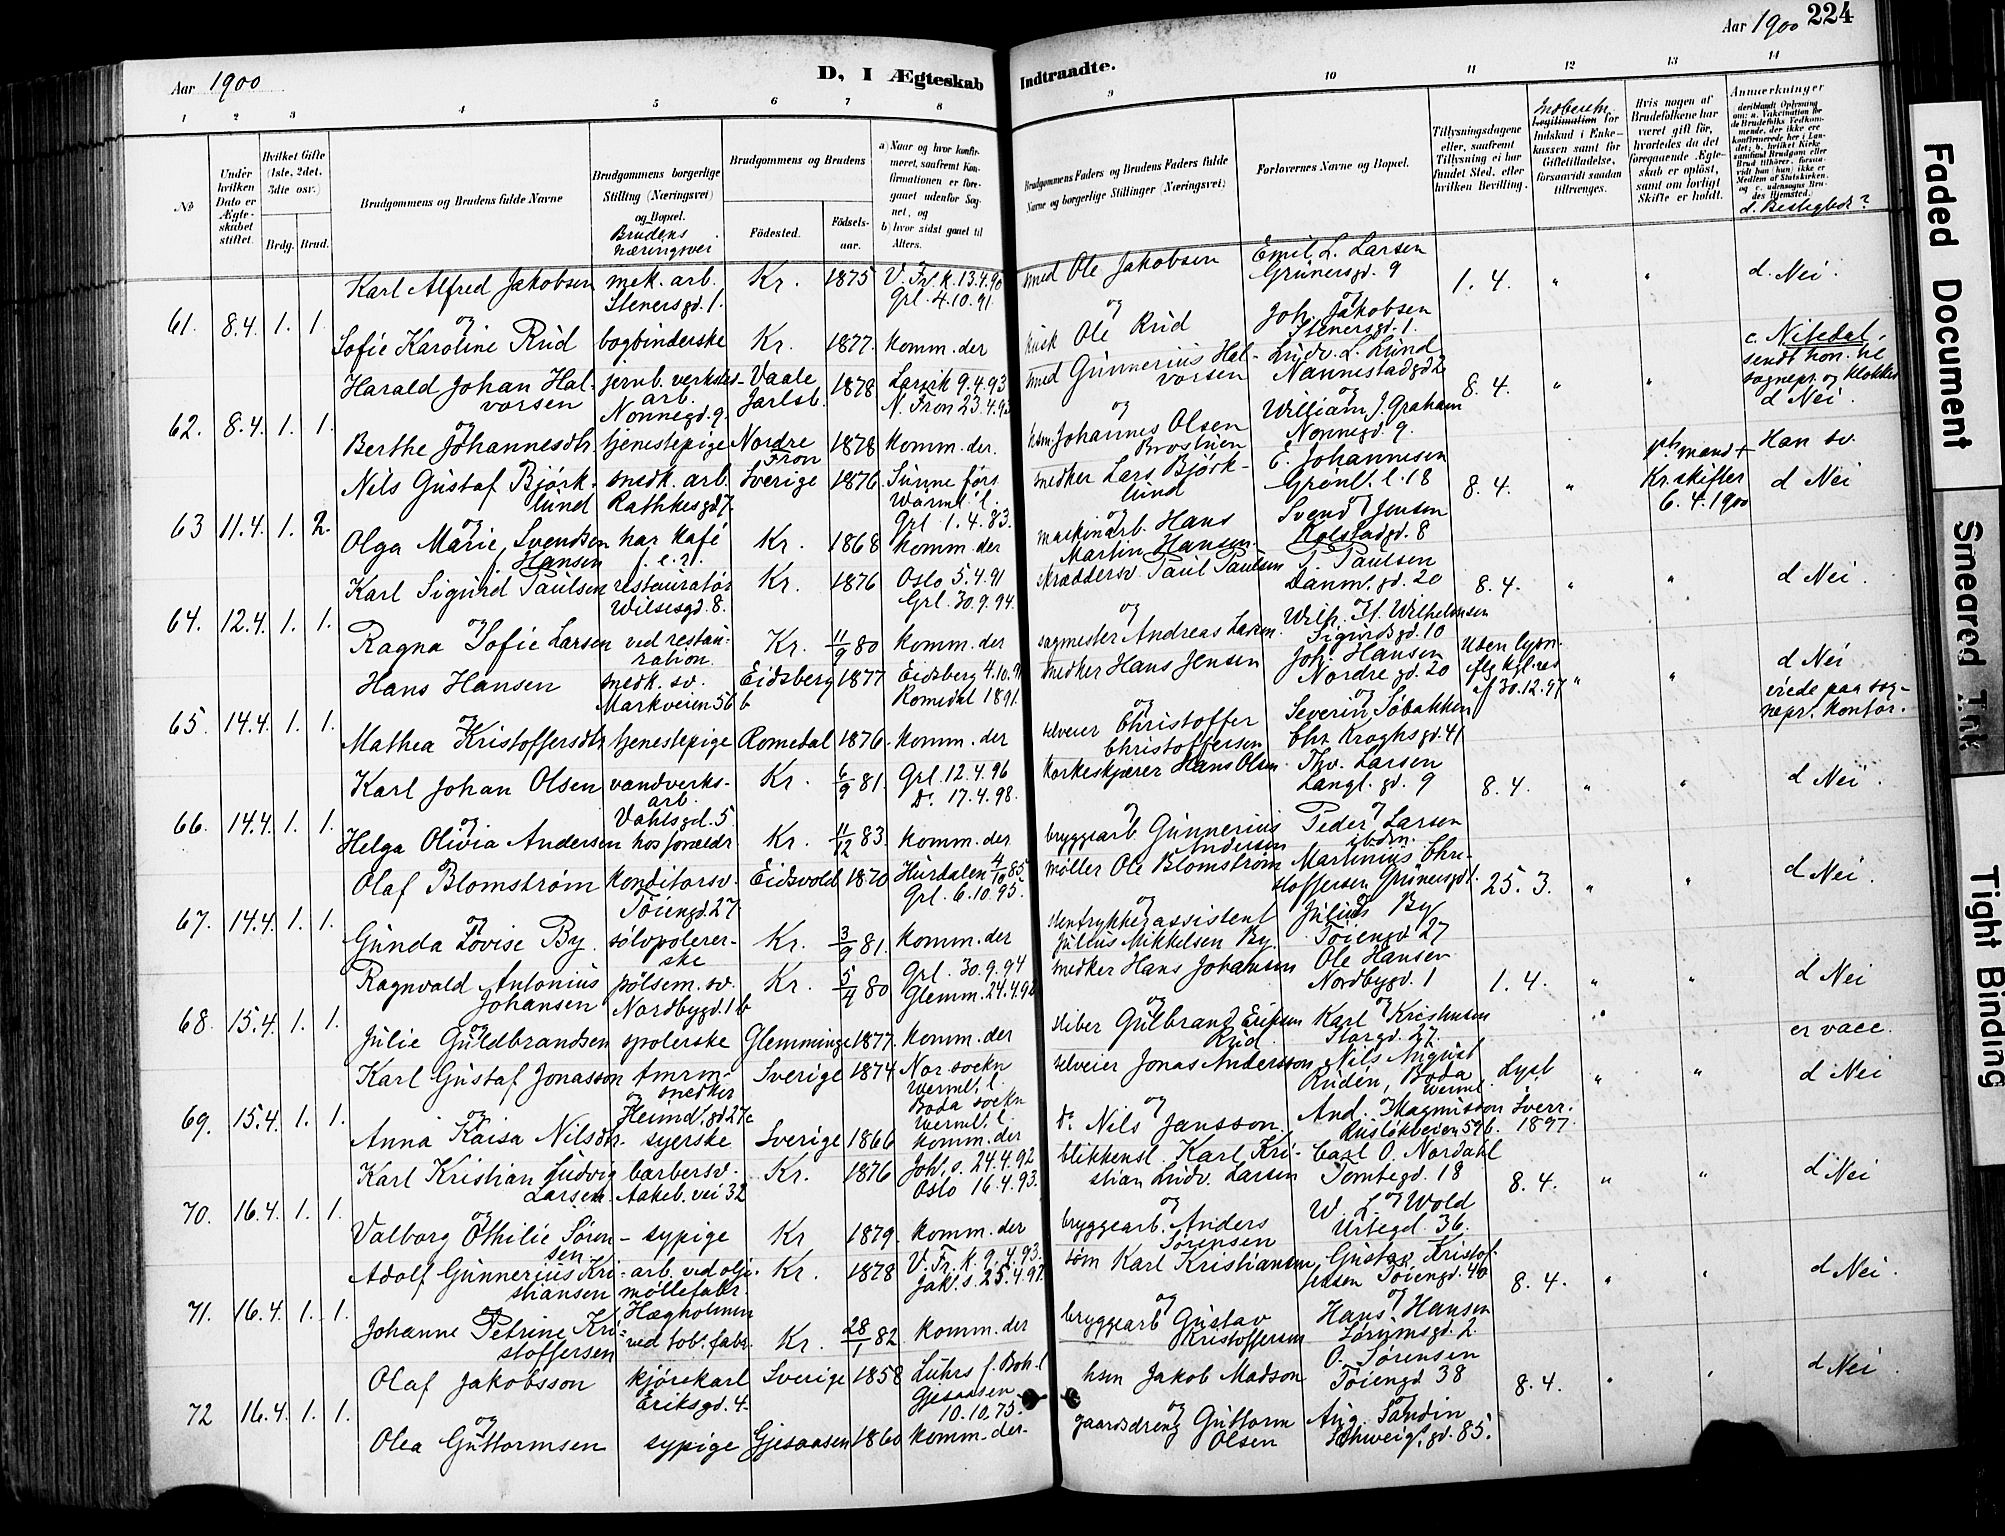 Aar 1900
D, I Ægteskab
Indtraadte.
Aar 1900 224
1 2 3 4 5 6 7 8 9 10 11 12 13 14
No
Under hvilken Dato er Ægteskabet stiftet.
Hvilket Gifte (1ste, 2det, 3die osv.)
Brdg. Brud.
Brudgommens og Brudens fulde Navne
Brudgommens borgerlige Stilling (Næringsvei) og Bopæl.
Brudens næringsvei
Brudgommens og Brudens
Födested.
Födsels-aar.
a) Naar og hvor konfirmeret, saafremt Konfirmationen er foregaaet udenfor Sognet, og
b) hvor sidst gaaet til Alters.
Brudgommens Faders og Brudens Faders fulde Navne og borgerlige Stillinger (Næringsvei)
Forlovernes Navne og Bopæl.
Tillysningsdagene eller, saafremt Tillysning ei har fundet Sted, efter hvilken Bevilling.
Legitimation for Indskud i Enkekassen samt for Giftetilladelse, forsaavidt saadan tiltrænges.
Hvis nogen af Brudefolkene har været gift för, hvorledes da det foregaaende Ægteskab er oplöst, samt om lovligt Skifte er holdt.
Anmærkninger
d. Beslegtede?
61. 8.4. 1. 1.
Karl Alfred Jakobsen mek. arb. Stenersgd. 1. Kr. 1875 V. Fr. k. 13.4.90 Grl. 4.10.91
smed Ole Jakobsen Emil L. Larsen Grünersgd. 9 1. 4. " " d. Nei.
og
Sofie Karoline Rud bogbinderske Kr. 1877. komm. der
kusk Ole Rud Joh. Jakobsen Stenersgd. 1.
62. 8.4. 1. 1.
Harald Johan Halvorsen jernb. verksted-arb. Nonnegd. 9 Vaale Jarlsb. 1878 Larvik 9.4.93 N. Fron 23.4.93
smed Gunnerius Halvorsen Ludv. L. Lund Nannestadgd 2 8. 4. " " c. Nitedal,
sendt hon. til sognepr. og klokker d Nei.
og
Berthe Johannesdtr. tjenestepige Nordre Fron 1878 komm. der.
hsm. Johannes Olsen William J. Graham Nonnegd. 9.
63 11.4. 1. 2.
Nils Gustaf Björklund snedk. arb. Rathkesgd 7. Sverige 1876 Sunne förs Warml. l. Grl. 1.4.83.
snedker Lars Björklund E. Johannesen Grönl. l. 18 8. 4. " Kr. skifter 6.4.1900 Han sv. d Nei
og
Olga Marie Svendsen f. Hansen har kafé Kr. 1868 komm. der
maskinarb. Hans Martin Hansen Svend Jensen Holstadgd. 8
64. 12.4. 1. 1.
Karl Sigurd Paulsen restauratör Wilsesgd. 8. Kr. 1876 Oslo 5.4.91 Grl. 30.9.94.
skræddersv. Paul Paulsen P. Paulsen Danm. gd. 20 8. 4. " " d Nei.
og
Ragna Sofie Larsen ved restauration. Kr. 11/9 80 komm. der
sagmester Andreas Larsen Wilh. H. Wilhelmsen Sigurdsgd. 10
65. 14.4. 1. 1.
Hans Hansen snedk. sv. Markveien 56 b Eidsberg 1877 Eidsberg 4.10.91 Romedal 1891.
snedker Hans Jensen Joh. Hansen Nordre gd. 20 Uden lysn. flg kgl. res af 30.12.97 " " d Nei
viede paa sognepr. kontor.
og
Mathea Kristoffersdtr tjenestepige Romedal 1876. komm. der
selveier Christoffer Christoffersen Severin Söbakken Chr. Kroghsgd. 41
66. 14.4. 1. 1.
Karl Johan Olsen vandverks-arb. Vahlsgd. 5 Kr. 6/9 81. Grl. 12.4.96 Do. 17.4.98.
korkeskjærer Hans Olsen Thv. Larsen Langl. gd. 9 8. 4. " " d Nei.
og
Helga Olivia Andersen hos foreldr Kr. 11/12 83. komm. der
bryggearb Gunnerius Andersen Peder Larsen ibdm.
67. 14.4. 1. 1.
Olaf Blomström konditorsv. Töiengd. 27. Eidsvold 1870 Hurdalen 4/10 85. Grl. 6.10.95.
möller Ole Blomström Martinius Christoffersen Grünersgd 1. 25. 3. " " d Nei.
og
Gunda Lovise By sölvpolererske Kr. 3/9 81. komm. der
stentrykkerassistent Julius Mikkelsen By. Julius By Töiengd 27
68. 15.4. 1. 1.
Ragnvald Antonius Johansen pölsem. sv. Nordbygd. 1 b Kr. 5/4 80 Grl. 30.9.94 Glemm. 24.4.98
snedker Hans Johansen Ole Hansen Nordbygd. 1 1. 4. " " d Nei
og
Julie Guldbrandsen spolerske Glemminge 1877. komm. der
sliber Gulbrand Eriksen Rud Karl Kristensen Storgd. 27. er vacc.
69. 15.4. 1. 1.
Karl Gustaf Jonasson tmrm-snedker Heimd. gd 27 c Sverige 1874 Nor sockn Werml. l. Boda sockn Werml. l.
selveier Jonas Andersson Nils August Rudén, Boda Werml. Lyst i Sverr. 1897. " " d Nei
og
Anna Kaisa Nilsdtr. syerske Sverige 1866 komm. der
do. Nils Jansson. And. Magnusson Ruslökveien 59 b.
70. 16.4. 1. 1.
Karl Kristian Ludvig Larsen barbersv. Aakeb. vei 32 Kr. 1876 Joh. s. 24.4.92 Oslo 16.4.93.
blikkensl. Karl Kristian Ludv. Larsen Carl O. Nordahl Tomtegd. 18 8. 4. " " d Nei
og
Valborg Othilie Sörensen sypige Kr 1879. komm. der
bryggearb. Anders Sörensen W. L. Wold Urtegd. 36.
71. 16.4. 1. 1.
Adolf Gunnerius Kristiansen arb. ved olje-möllefabr. Hægholmen Kr. 1878 V. Fr. k. 9.4.93. Jak. s. 25.4.97.
söm Karl Kristiansen Gustav Kristoffersen Töiengd. 40 8. 4. " " d Nei.
og
Johanne Petrine Kristoffersen ved tob. fabr. Kr. 28/1 82. komm. der
bryggearb Gustav Kristoffersen Hans Hansen Sörumsgd. 2.
72 16.4. 1. 1.
Olaf Jakobsson kjörekarl Eriksgd. 4. Sverige 1858 Luhrs f. Boh. l Gjesaasen 10.10.75.
hsm Jakob Madson O. Sörensen Töiengd 38 8. 4. " " d Nei
og
Olea Guttormsen sypige Gjesaasen 1860 komm. der
gaardsdreng Guttorm Olsen Aug. Sandin Schweig. gd. 85.
Faded Document
Smeared Ink
Tight Binding